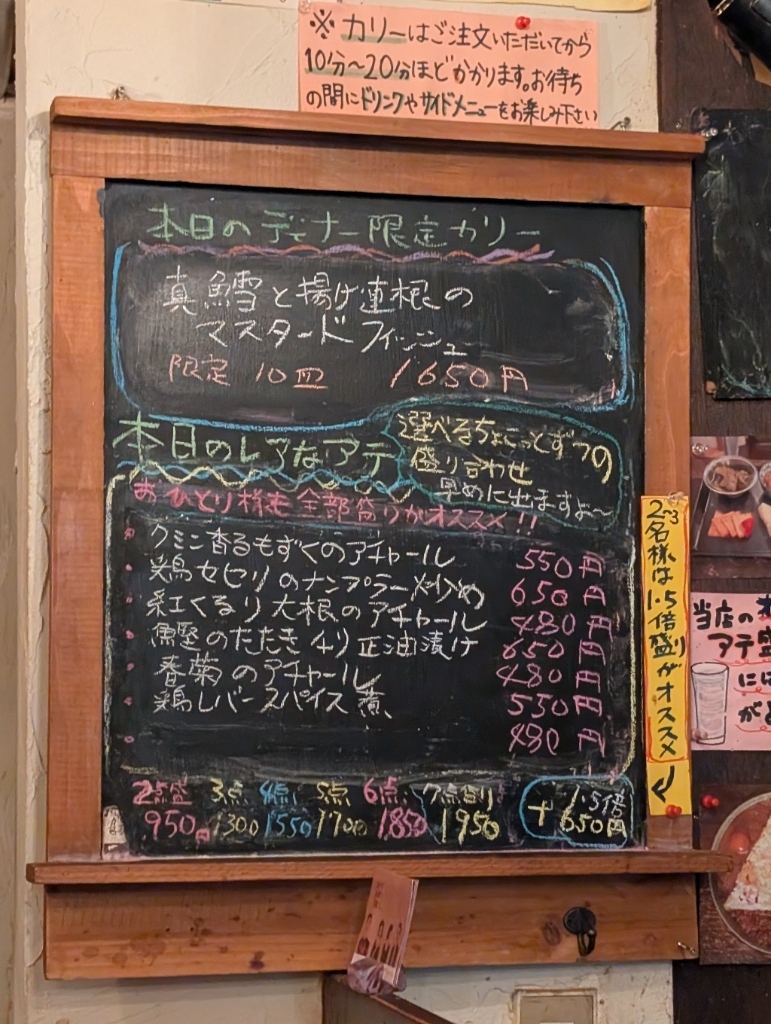 ※カリーはご注文いただいてから
10分〜20分ほどかかります。お待ち
の間にドリンクやサイドメニューをお楽しみ下さい
本日のディナー限定カリー
真鱈と揚げ連根の
マスタードフィッシュ
限定 10皿 1650円
本日のレアなアテ
選べるちょこっとずつの
盛り合わせ
早めに出ますよ〜
おひとり様も全部盛りがオススメ!!
クミン香るもずくのアチャール 550円
鶏セセリのナンプラー炒め 650円
紅くるり大根のアチャール 480円
鰹のたたき 正油漬け 650円
春菊のアチャール 480円
鶏レバースパイス煮 550円
480円
2点盛 3点 4点 5点 6点 7点盛り
950円 1300 1550 1700 1850 1950
+ 1.5倍
650円
2~3名様は1.5倍盛りがオススメ
当店の
アテ盛
には
が